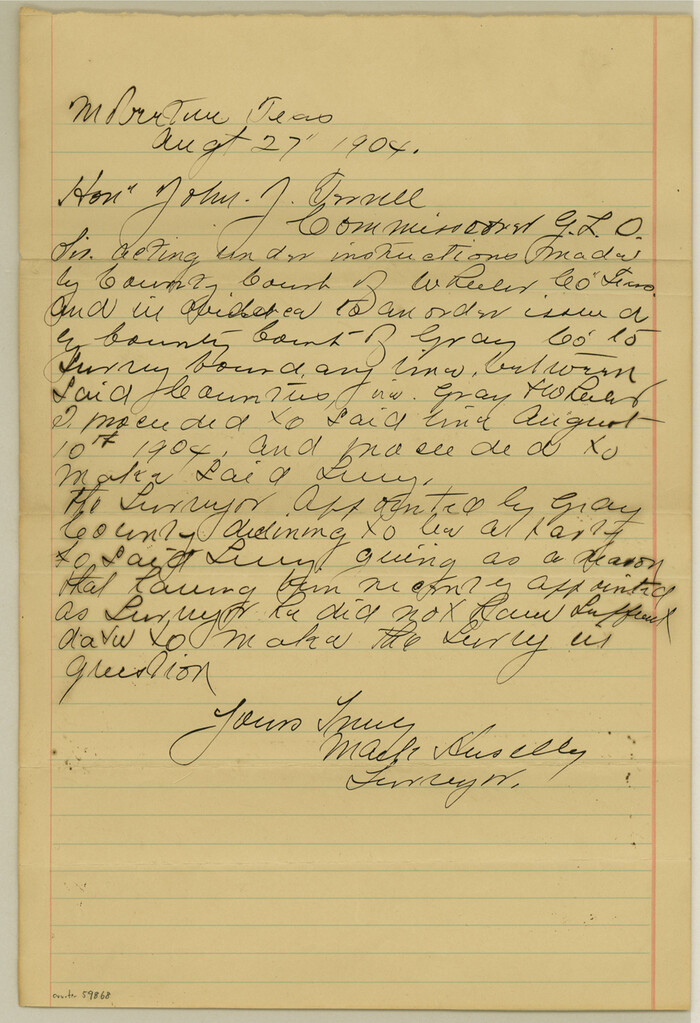 Mobeetie Texas
Augt 27" 1904.
Hon" John. J. Terrell
Commissioner G.L.O.
Sir. acting under instructions made
by County Court of Wheeler Co" Texas
and in to an order issued
by County Court of Gray Co to
Survey boundary line, between
Said Counties, viz. Gray & Wheeler
I proceeded to said line August
10th 1904, and proceeded to
make said Survey.
The Surveyor appointed by Gray
County declining to be a Party
to said Survey giving as a reason
that having been recently appointed
as Surveyor he did not have Suffient
data to make the Survey in
question
Yours Truly
Mark Huselby
Surveyor.
59868